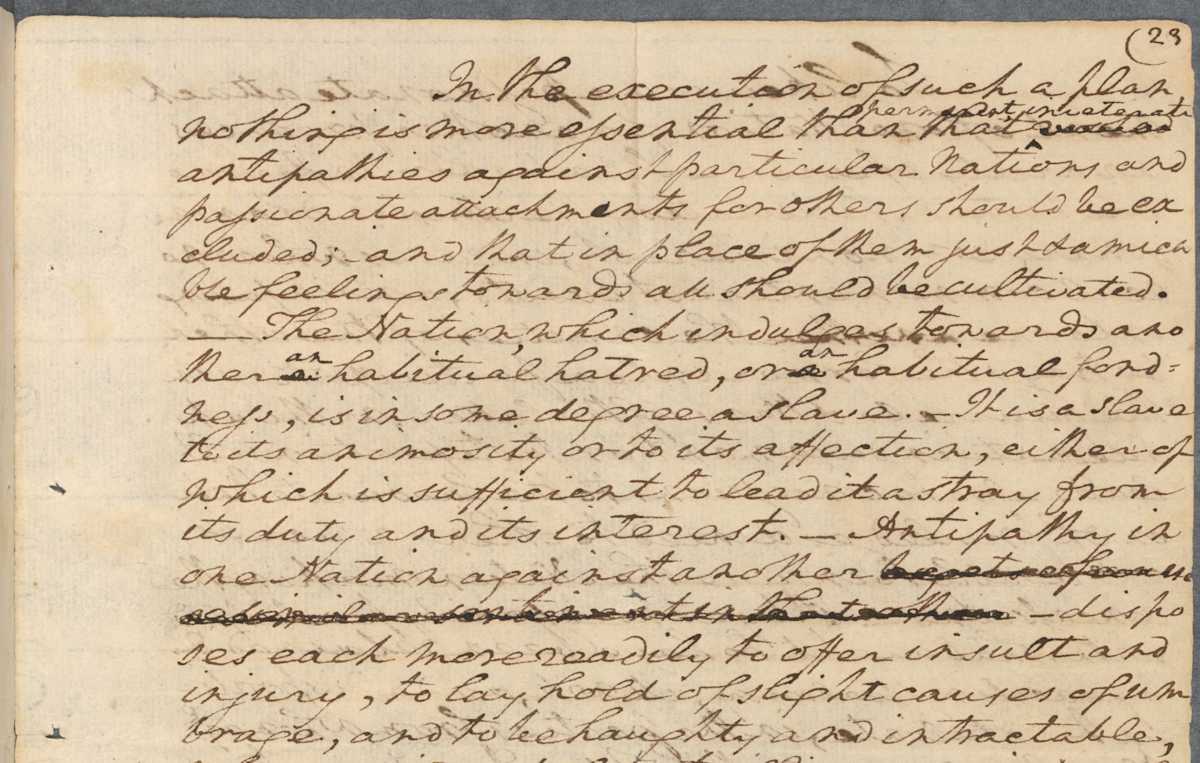 (23
In the execution of such a plan
permanent, inveterate
nothing is more essential than that
antipathies against particular Nations and
passionate attachments for others should be ex
cluded; and that in place of them just & amica
ble feelings towards all should be cultivated.
— The Nation, which indulges towards ano
an an
ther a habitual hatred, or a habitual fond=
ness, is in some degree a slave. — It is a slave
to its animosity or to its affection, either of
which is sufficient to lead it astray from
its duty and its interest. — Antipathy in
one Nation against another begets of course
a similar sentiment in that other — dispo
ses each more readily to offer insult and
injury, to lay hold of slight causes of um
brage, and to be haughty and intractable,